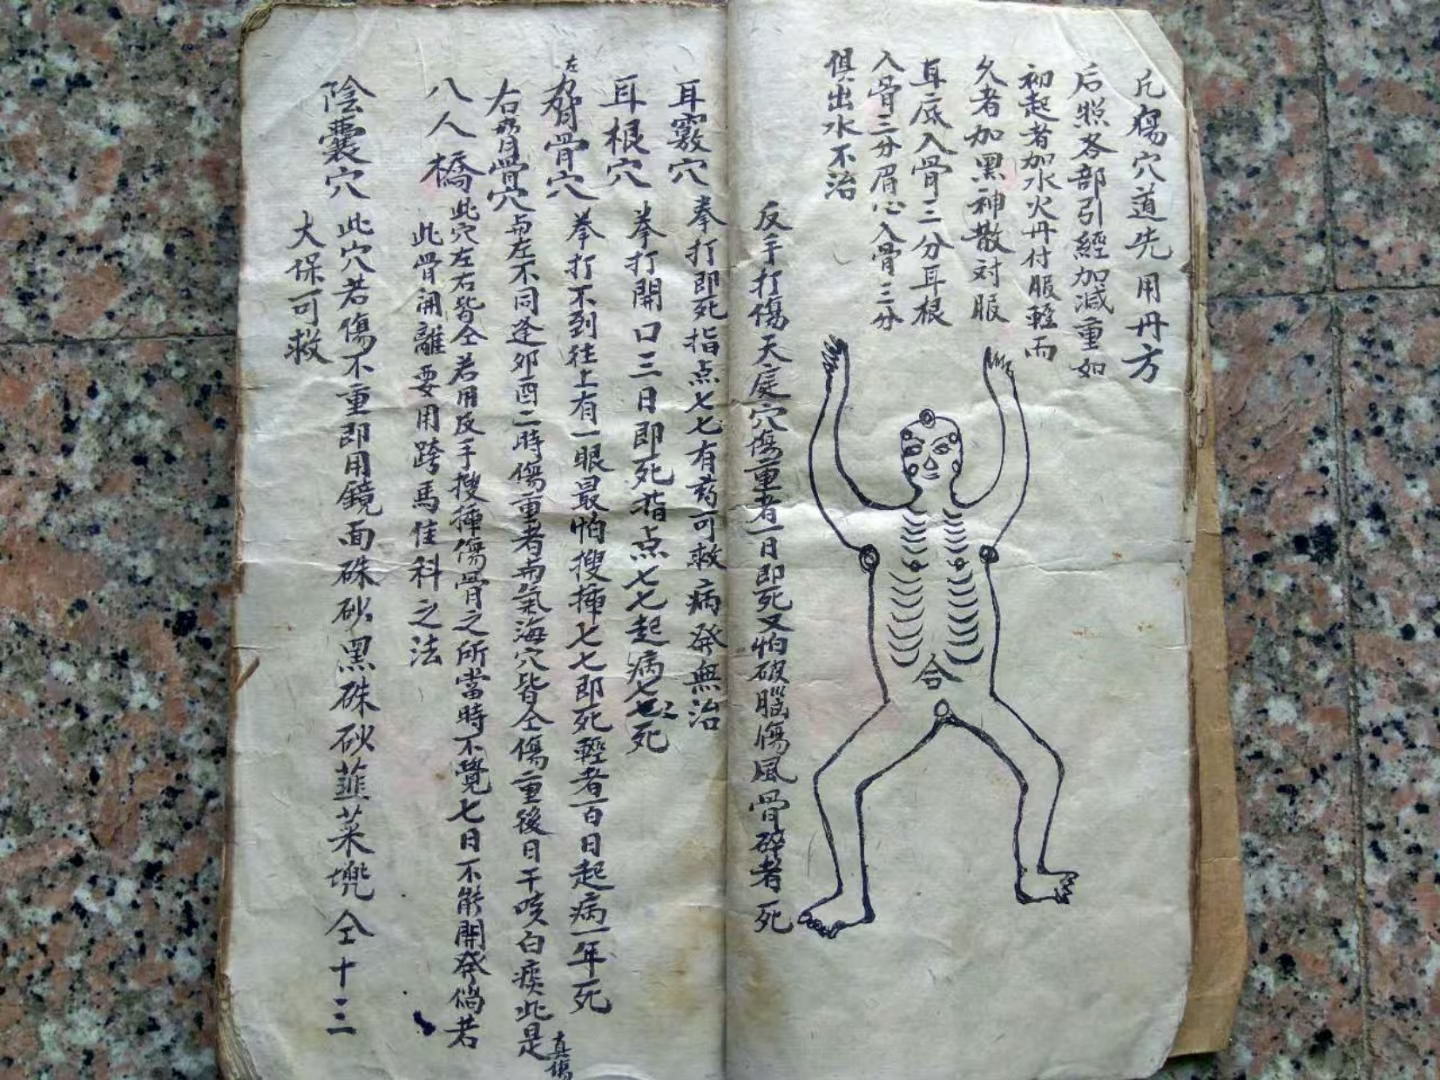 凡傷穴道先用丹方
后照各部引經加減重如
初起者加水火丹付服輕而
久者加黑神散对服
耳底入骨三分耳根
入骨三分眉心入骨三分
俱出水不治
合
反手打傷天庭穴傷重者一日即死又怕破腦傷風骨碎者死
耳竅穴 拳打即死指点七七有葯可救病發無治
耳根穴 拳打開口三日即死指点七七起病七七死
左脅骨穴 拳打不到往上有一眼最怕搜插七七即死輕者百日起病一年死
右脅骨穴 与左不同逢卯酉二時傷重者与氣海穴皆仝傷重後日干咳白痰此是真傷
八人橋 此穴左右皆仝若用反手搜插傷骨之所當時不覺七日不能開發倘若
此骨開離要用跨馬佳科之法
陰囊穴 此穴若傷不重即用鏡面硃砂黑硃砂韮菜兠仝十三
大保可救